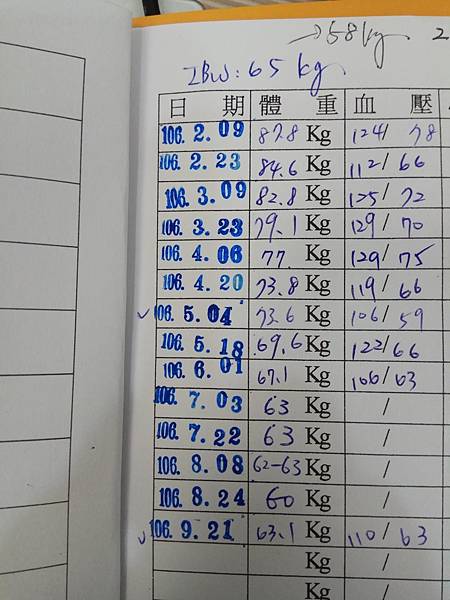 →58kg 2
IBW: 65 kg
日 期 體 重 血 壓
106. 2. 09 87.8 Kg 124/78
106. 2. 23 84.6 Kg 112/66
106. 3. 09 82.8 Kg 125/72
106. 3. 23 79.1 Kg 129/70
106. 4. 06 77 Kg 129/75
106. 4. 20 73.8 Kg 119/66
✓ 106. 5. 04 73.6 Kg 106/59
106. 5. 18 69.6 Kg 122/66
106. 6. 01 67.1 Kg 106/63
106. 7. 03 63 Kg /
106. 7. 22 63 Kg /
106. 8. 08 62-63 Kg /
106. 8. 24 60 Kg /
✓ 106. 9. 21 63.1 Kg 110/63
Kg /
Kg /